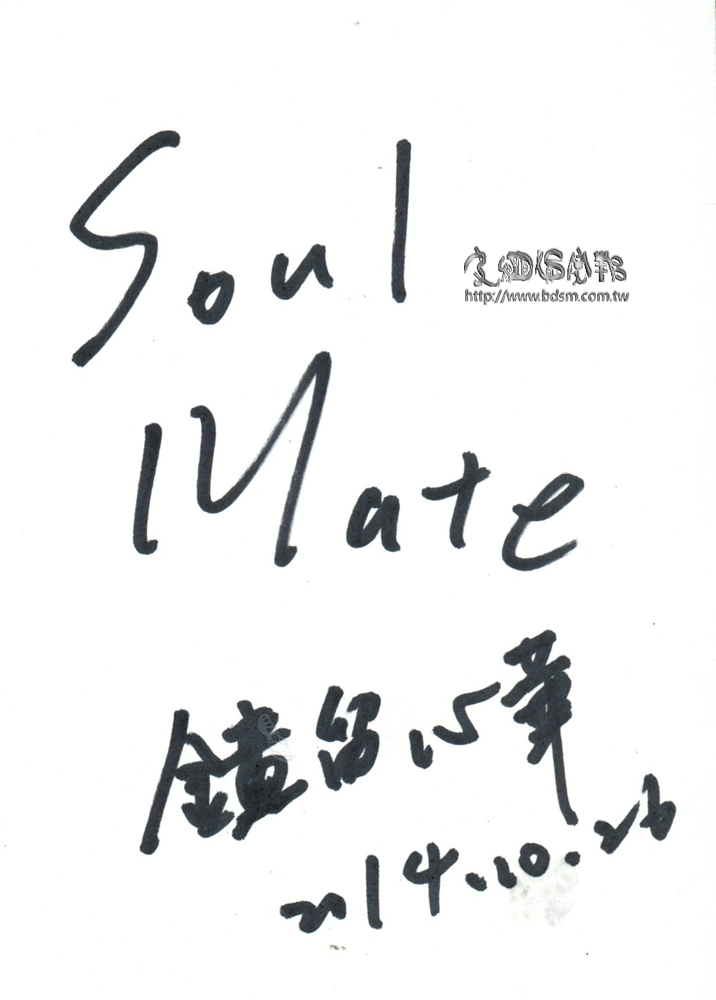 Soul
http://www.bdsm.com.tw
Mate
留心華
2014.10.26